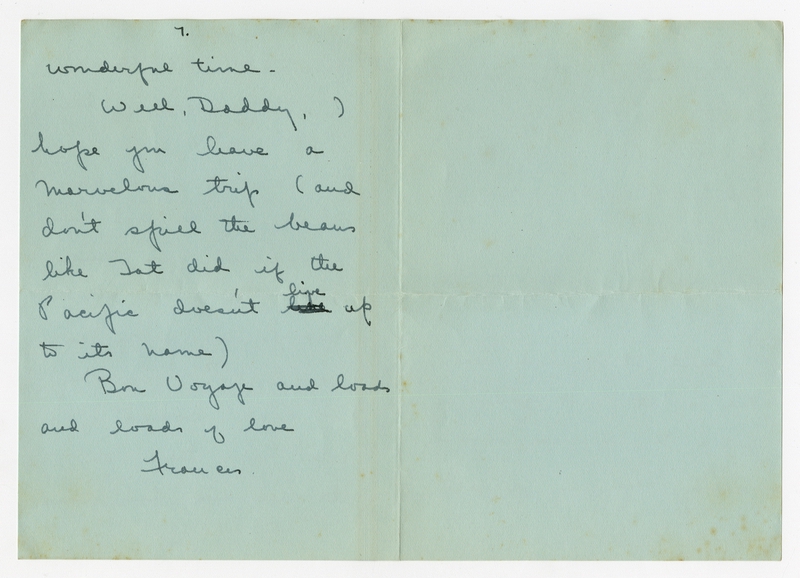 7.
wonderful time -
Well, Daddy, I
hope you have a
marvelous trip (and
don't spill the beans
like Tat did if the
Pacific doesn't live up
to its name)
Bon Voyage and loads
and loads of love
Frances.